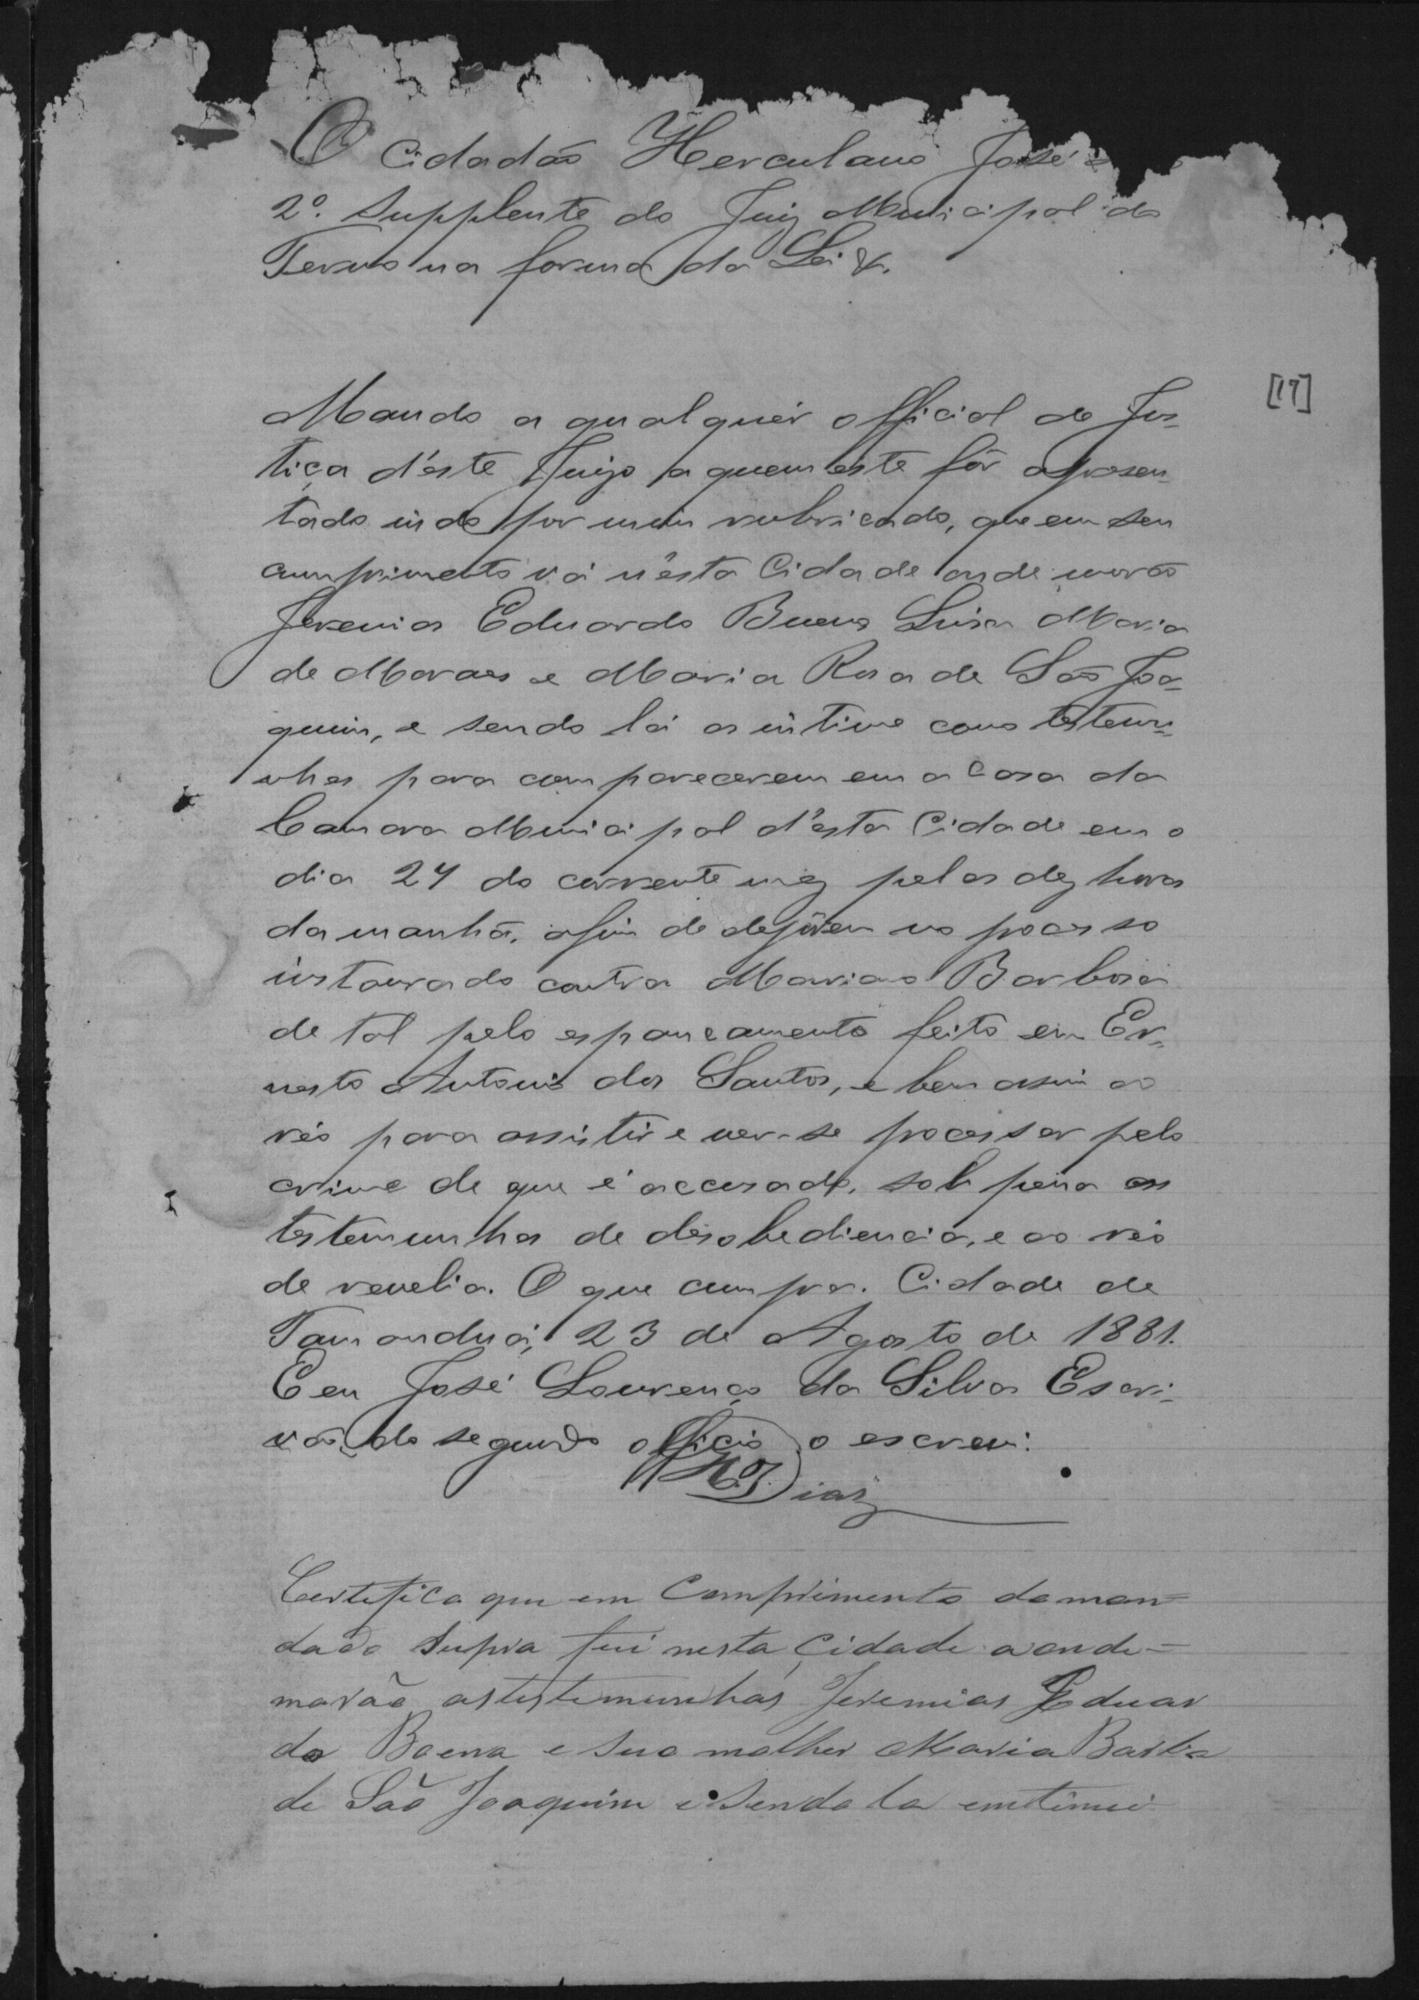 O Cidadão Herculano José
2º. Supplente do Juiz Municipal do
Termo na forma da Lei &.
[17]
Mando a qualquér official de Jus-
tiça d'éste Juizo a quem éste fôr apresen-
tado indo por mim rubricado, que em seu
cumprimento vá n'ésta Cidade onde morão
Jeremias Eduardo Buens Luisa Maria
de Moraes e Maria Rosa de São Joa-
quim, e sendo lá os intime como testemu-
nhas para comparecerem em a Casa da
Camara Municipal d'ésta Cidade em o
dia 24 do corrente mez pelas dez horas
da manhã, afim de depôrem no processo
instaurado contra Mariano Barbosa
de tal pelo espancamento feito em Er-
nesto Antonio dos Santos, e bem assim ao
réo para assistir e ver-se processar pelo
crime de que é accusado, sob pena as
testemunhas de desobediencia, e ao réo
de revelia. O que cumpra. Cidade de
Tamanduá, 23 de Agosto de 1881.
E eu José Lourenço da Silva Escri-
vão do segundo officio o escrevi.
Dias
Certifica que em Comprimento do man-
dado Supra fui nesta Cidade aonde-
morão astestemunhas Jeremias Eduar
do Boena e Sua molher Maria
de São Joaquim e Sendo la emtimei